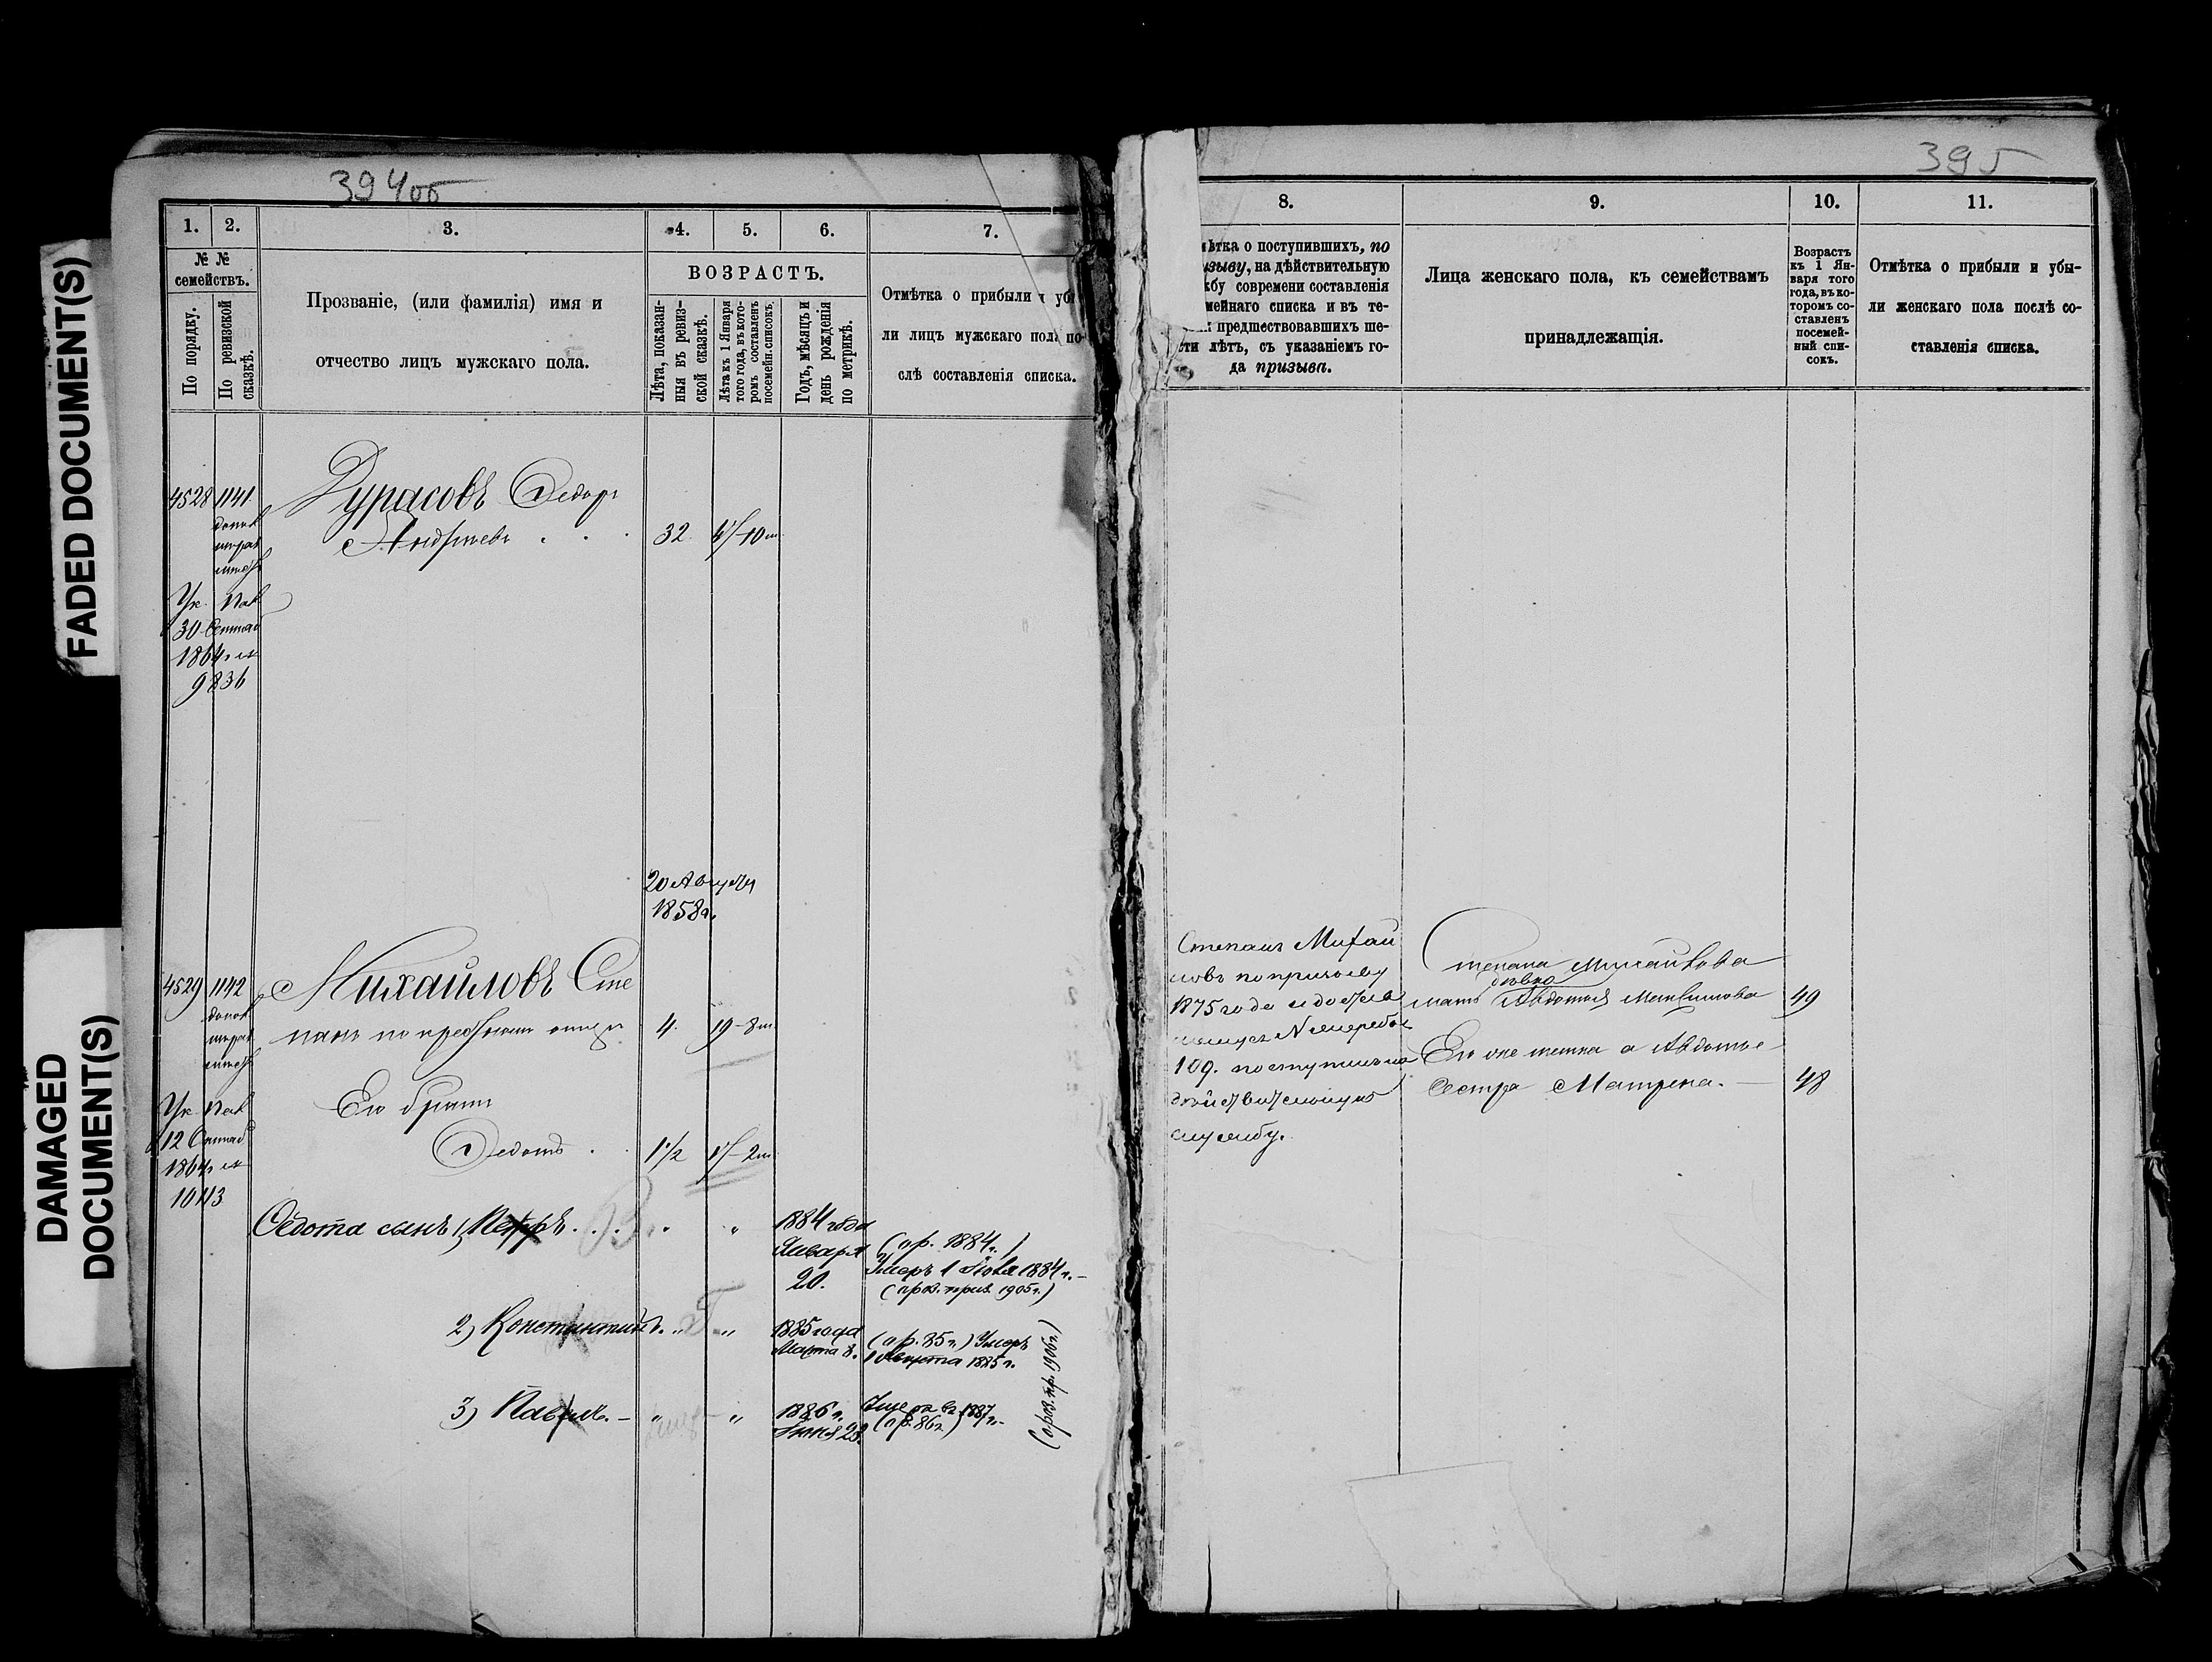 FADED DOCUMENT(S)
DAMAGED
DOCUMENT(S)
394об
1. 2. 3. 4. 5. 6. 7.
№ №
семействъ.
По порядку.
По ревизской
сказкѣ.
Прозваніе, (или фамилія) имя и
отчество лицъ мужскаго пола.
ВОЗРАСТЪ.
Лѣта, показан-
ныя въ ревиз-
ской сказкѣ.
Лѣта къ 1 Января
того года, въ кото-
ромъ составленъ
посемейн. списокъ.
Годъ, мѣсяцъ и
день рожденія
по метрикѣ.
Отмѣтка о прибыли и уб
ли лицъ мужскаго пола по-
слѣ составленія списка.
4528 1141 Дурасовъ Федоръ
Андреевъ . . . 32
30
1864
9836
20 Августа
1858 г.
4529 1142 Михайловъ Сте
панъ по 4. 19-8м
Его братъ
Федотъ . . 1 1/2
12
1864
Федота сынъ 1, Петръ . . . " 1884 года
Января
20.
(пр. 1884 г.)
Умеръ 1 Іюля 1884 г. -
(пров. приз. 1905 г.)
2) Константинъ. " " 1885 года
Марта 8.
(пр. 85 г.) Умеръ
1 Августа 1885 г.
3) Павелъ. - " " 1886 г.
23.
Умеръ въ 1887 г. -
(пр. 86 г.)
(пров. пр. 1906 г.)
395
8. 9. 10. 11.
ѣтка о поступившихъ, по
изыву, на дѣйствительную
жбу современи составленія
мейнаго списка и въ те-
и предшествовавшихъ ше-
сти лѣтъ, съ указаніемъ го-
да призыва.
Лица женскаго пола, къ семействамъ
принадлежащія.
Возрастъ
къ 1 Ян-
варя того
года, въ ко-
торомъ со-
ставленъ
посемей-
ный спи-
сокъ.
Отмѣтка о прибыли и убы-
ли женскаго пола послѣ со-
ставленія списка.
Степанъ Михай
ловъ по призыву
1875 года и
109. поступилъ на
дѣйствительную
службу.
Степана Михайлова
мать Авдотья 49
Его же тетка а Авдотье
сестра Матрена. - 48